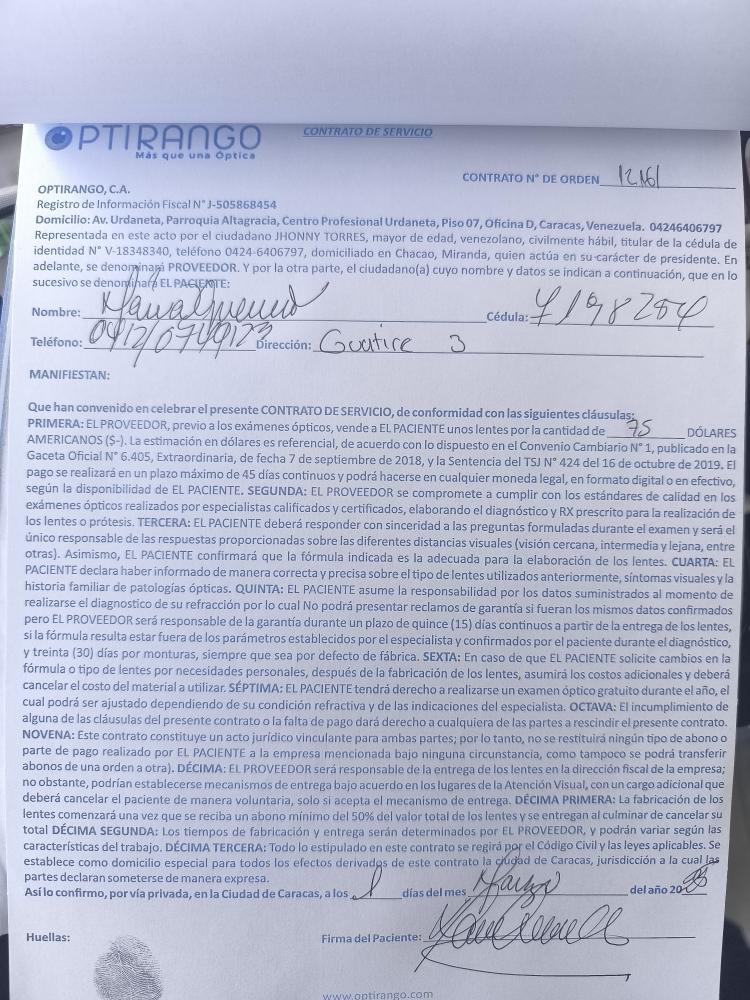 OPTIRANGO
Más que una Óptica
CONTRATO DE SERVICIO
CONTRATO N° DE ORDEN
OPTIRANGO, C.A.
Registro de Información Fiscal N° J-505868454
Domicilio: Av. Urdaneta, Parroquia Altagracia, Centro Profesional Urdaneta, Piso 07, Oficina D, Caracas, Venezuela. 04246406797
Representada en este acto por el ciudadano JHONNY TORRES, mayor de edad, venezolano, civilmente hábil, titular de la cédula de
identidad N° V-18348340, teléfono 0424-6406797, domiciliado en Chacao, Miranda, quien actúa en su carácter de presidente. En
adelante, se denominará PROVEEDOR. Y por la otra parte, el ciudadano(a) cuyo nombre y datos se indican a continuación, que en lo
sucesivo se denominará EL PACIENTE:
Nombre: Cédula: 7198254
Teléfono: Dirección: Guatire 3
MANIFIESTAN:
Que han convenido en celebrar el presente CONTRATO DE SERVICIO, de conformidad con las siguientes cláusulas:
PRIMERA: EL PROVEEDOR, previo a los exámenes ópticos, vende a EL PACIENTE unos lentes por la cantidad de 75 DÓLARES
AMERICANOS ($-). La estimación en dólares es referencial, de acuerdo con lo dispuesto en el Convenio Cambiario N° 1, publicado en la
Gaceta Oficial N° 6.405, Extraordinaria, de fecha 7 de septiembre de 2018, y la Sentencia del TSJ N° 424 del 16 de octubre de 2019. El
pago se realizará en un plazo máximo de 45 días continuos y podrá hacerse en cualquier moneda legal, en formato digital o en efectivo,
según la disponibilidad de EL PACIENTE. SEGUNDA: EL PROVEEDOR se compromete a cumplir con los estándares de calidad en los
exámenes ópticos realizados por especialistas calificados y certificados, elaborando el diagnóstico y RX prescrito para la realización de
los lentes o prótesis. TERCERA: EL PACIENTE deberá responder con sinceridad a las preguntas formuladas durante el examen y será el
único responsable de las respuestas proporcionadas sobre las diferentes distancias visuales (visión cercana, intermedia y lejana, entre
otras). Asimismo, EL PACIENTE confirmará que la fórmula indicada es la adecuada para la elaboración de los lentes. CUARTA: EL
PACIENTE declara haber informado de manera correcta y precisa sobre el tipo de lentes utilizados anteriormente, síntomas visuales y la
historia familiar de patologías ópticas. QUINTA: EL PACIENTE asume la responsabilidad por los datos suministrados al momento de
realizarse el diagnostico de su refracción por lo cual No podrá presentar reclamos de garantía si fueran los mismos datos confirmados
pero EL PROVEEDOR será responsable de la garantía durante un plazo de quince (15) días continuos a partir de la entrega de los lentes,
si la fórmula resulta estar fuera de los parámetros establecidos por el especialista y confirmados por el paciente durante el diagnóstico,
y treinta (30) días por monturas, siempre que sea por defecto de fábrica. SEXTA: En caso de que EL PACIENTE solicite cambios en la
fórmula o tipo de lentes por necesidades personales, después de la fabricación de los lentes, asumirá los costos adicionales y deberá
cancelar el costo del material a utilizar. SÉPTIMA: EL PACIENTE tendrá derecho a realizarse un examen óptico gratuito durante el año, el
cual podrá ser ajustado dependiendo de su condición refractiva y de las indicaciones del especialista. OCTAVA: El incumplimiento de
alguna de las cláusulas del presente contrato o la falta de pago dará derecho a cualquiera de las partes a rescindir el presente contrato.
NOVENA: Este contrato constituye un acto jurídico vinculante para ambas partes; por lo tanto, no se restituirá ningún tipo de abono o
parte de pago realizado por EL PACIENTE a la empresa mencionada bajo ninguna circunstancia, como tampoco se podrá transferir
abonos de una orden a otra). DÉCIMA: EL PROVEEDOR será responsable de la entrega de los lentes en la dirección fiscal de la empresa;
no obstante, podrían establecerse mecanismos de entrega bajo acuerdo en los lugares de la Atención Visual, con un cargo adicional que
deberá cancelar el paciente de manera voluntaria, solo si acepta el mecanismo de entrega. DÉCIMA PRIMERA: La fabricación de los
lentes comenzará una vez que se reciba un abono mínimo del 50% del valor total de los lentes y se entregan al culminar de cancelar su
total DÉCIMA SEGUNDA: Los tiempos de fabricación y entrega serán determinados por EL PROVEEDOR, y podrán variar según las
características del trabajo. DÉCIMA TERCERA: Todo lo estipulado en este contrato se regirá por el Código Civil y las leyes aplicables. Se
establece como domicilio especial para todos los efectos derivados de este contrato la ciudad de Caracas, jurisdicción a la cual las
partes declaran someterse de manera expresa.
Así lo confirmo, por vía privada, en la Ciudad de Caracas, a los 1 días del mes Marzo del año 20
Huellas: Firma del Paciente:
www.optirango.com